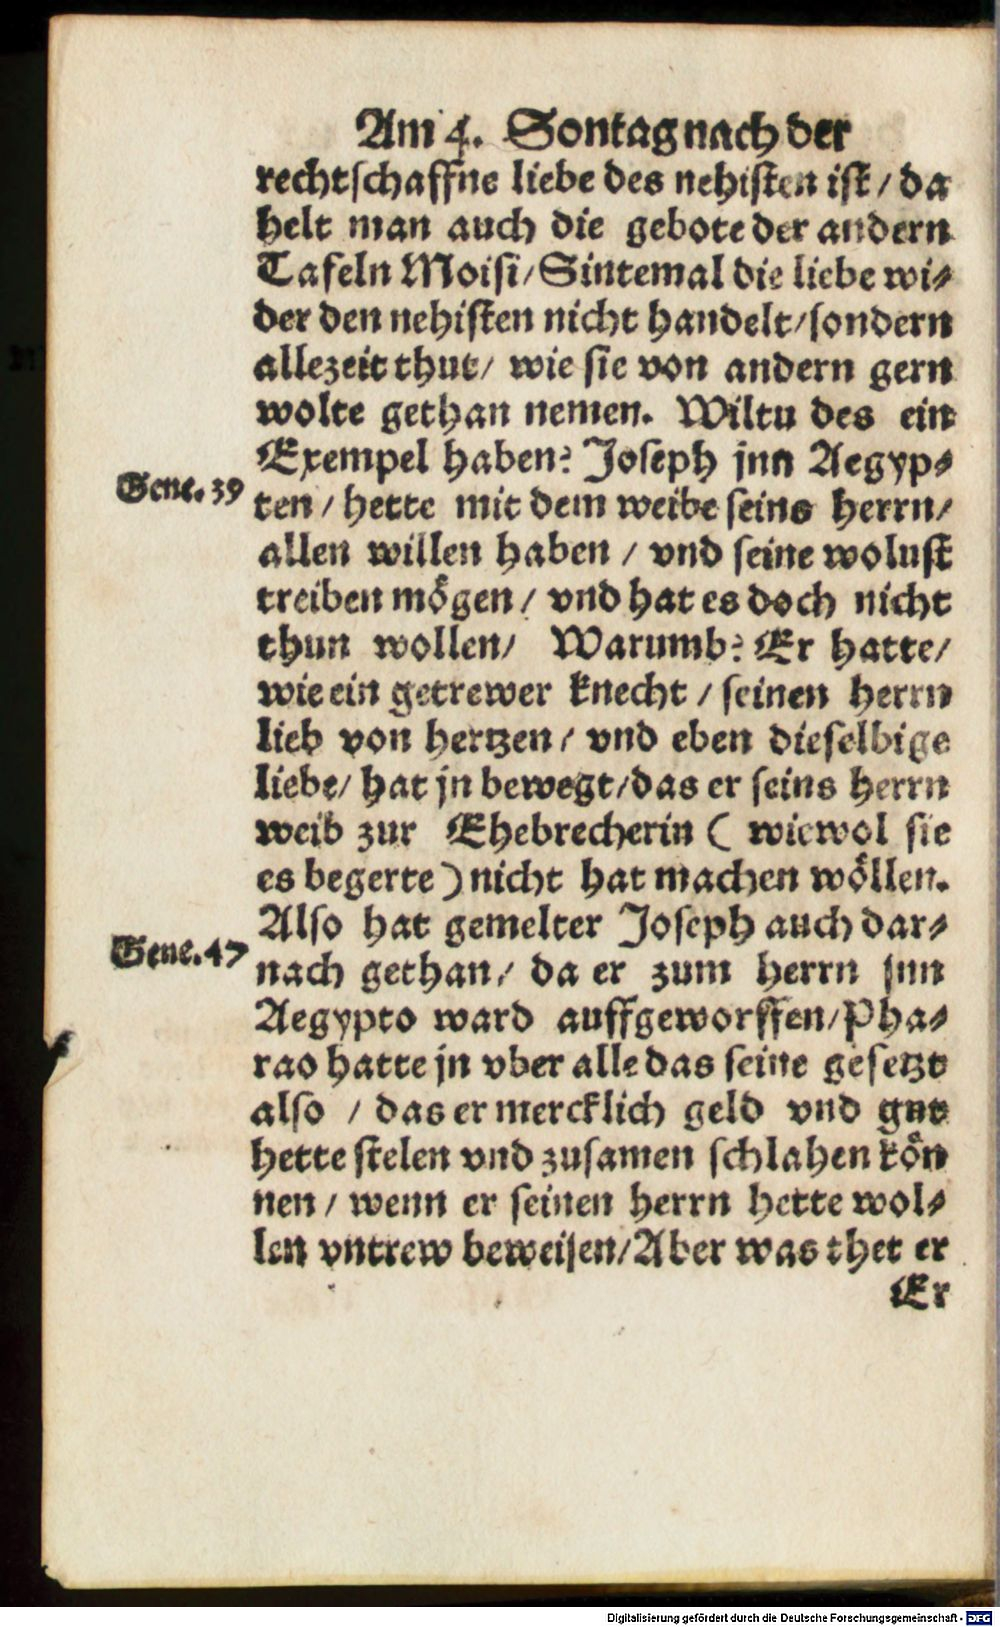 Am 4. Sontag nach der
rechtschaffne liebe des nehisten ist / da
helt man auch die gebote der andern
Tafeln Moisi / Sintemal die liebe wi⸗
der den nehisten nicht handelt / sondern
allezeit thut / wie sie von andern gern
wolte gethan nemen. Wiltu des ein
Exempel haben? Joseph jnn Aegyp⸗
Gene. 39
ten / hette mit dem weibe seins herrn /
allen willen haben / vnd seine wolust
treiben mögen / vnd hat es doch nicht
thun wollen / Warumb? Er hatte /
wie ein getrewer knecht / seinen herrn
lieb von hertzen / vnd eben dieselbige
liebe / hat jn bewegt / das er seins herrn
weib zur Ehebrecherin ( wiewol sie
es begerte ) nicht hat machen wöllen.
Also hat gemelter Joseph auch dar⸗
Gene. 47
nach gethan / da er zum herrn jnn
Aegypto ward auffgeworffen / Pha⸗
rao hatte jn vber alle das seine gesetzt
also / das er mercklich geld vnd gut
hette stelen vnd zusamen schlahen kön
nen / wenn er seinen herrn hette wol⸗
len vntrew beweisen / Aber was thet er
Er
Digitalisierung gefördert durch die Deutsche Forschungsgemeinschaft - DFG